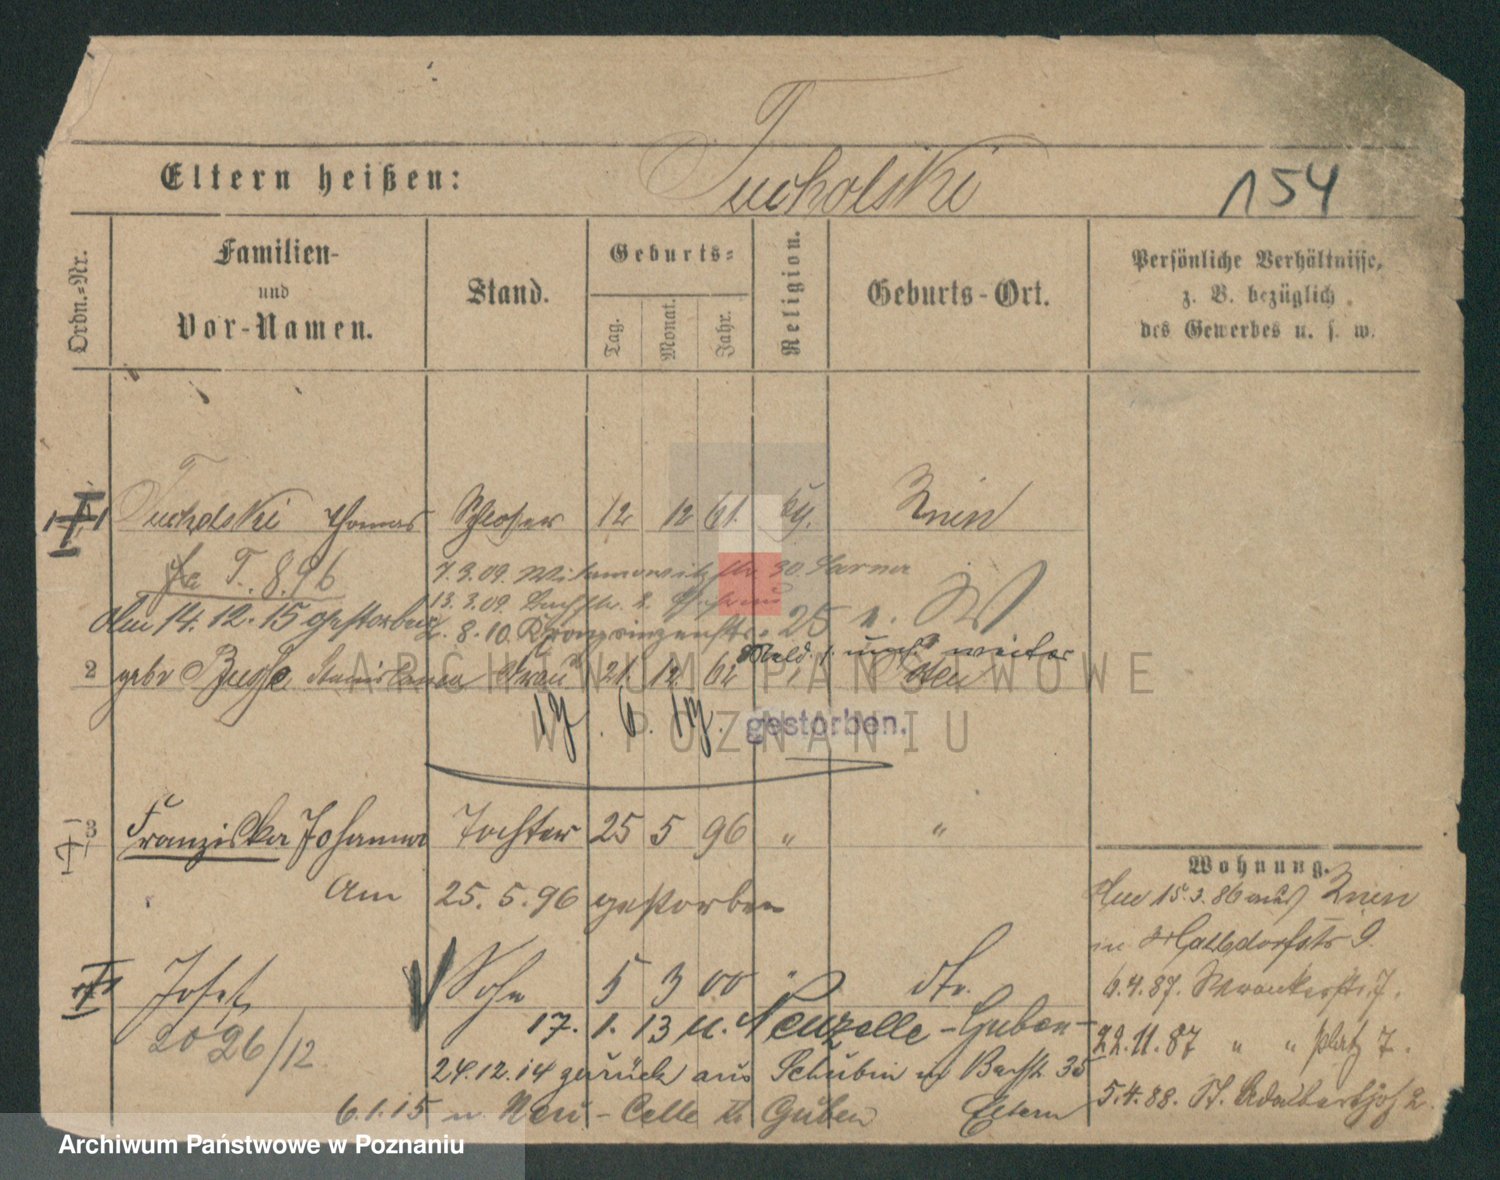 Tucholski
Eltern heißen:
154
Ordn.-Nr.
Familien-
und
Vor-Namen.
Stand.
Geburts-
Tag.
Monat.
Jahr.
Religion.
Geburts-Ort.
Persönliche Verhältnisse,
z. B. bezüglich
des Gewerbes u. s. w.
1 Tucholski Thomas Schlosser 12 12 61. Znin
T. 8.96
7.3.09. 30.
13.3.09.
Am 14.12.15 gestorben
8.10. Kronprinzenstr. 25
Meld. weiter
2 gebr Stanislawa Frau 21. 12. 62 " Posen
19. 6. 19. gestorben.
3 Franziska Johanna Tochter 25 5 96 " "
Am 25.5.96 gestorben
Josef Sohn 5 3 00 " dto.
17. 1. 13 n. Neuzelle - Guben -
20 26/12
24.12.14 zurück aus Schubin in Bachstr. 35
6.1.15 n. Neu-Celle Kr. Guben Eltern
Wohnung.
Am 15.3.86 aus Znin
in Halbdorfstr 9.
6.4.87. Wronkerstr. 7.
22.11.87 " " platz 7.
5.4.88. St. Adalberthof 2.
ARCHIWUM PAŃSTWOWE
W POZNANIU
Archiwum Państwowe w Poznaniu